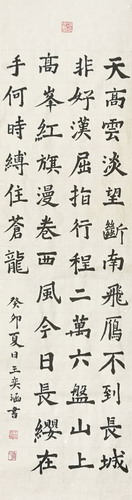 天高雲淡望斷南飛鴈不到長城
非好漢屈指行程二萬六盤山上
高峯紅旗漫卷西風今日長纓在
手何時縛住蒼龍
癸卯夏日王奕涵書